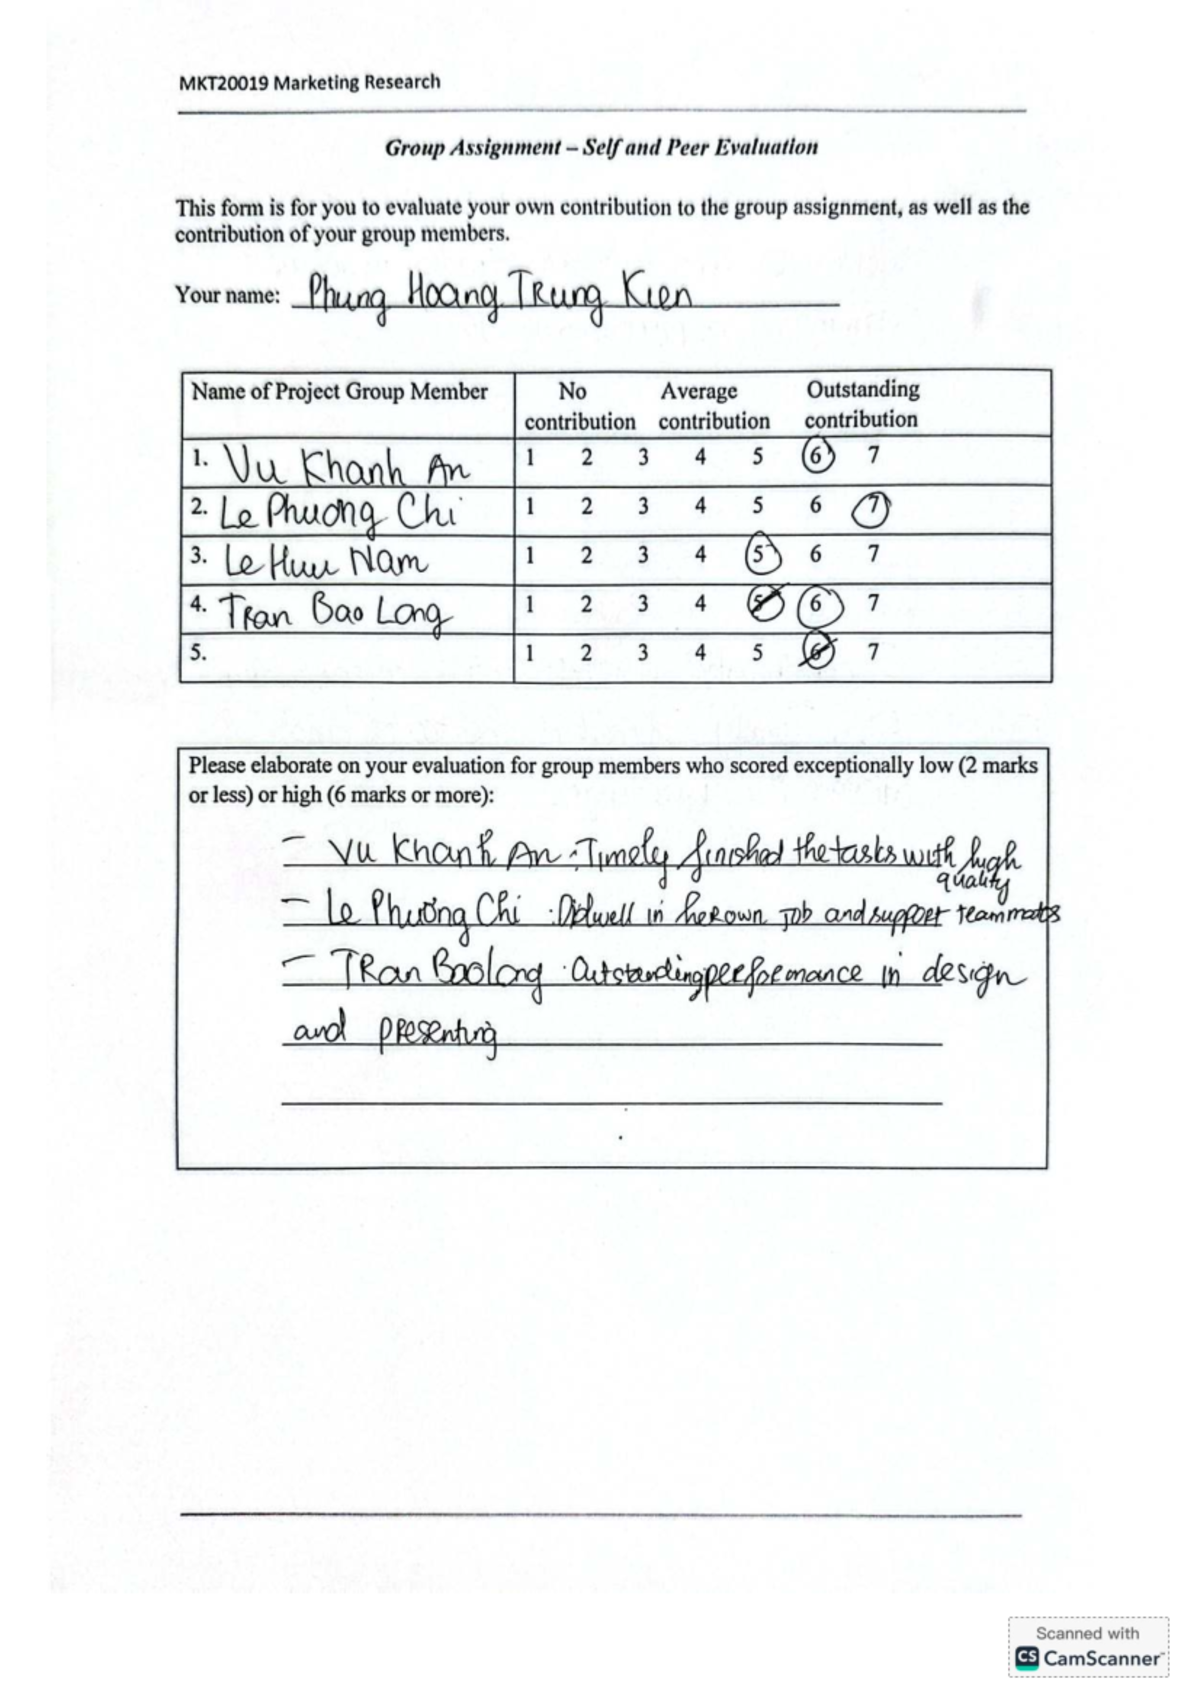 MKT20019 Marketing Research
Group Assignment – Self and Peer Evaluation
This form is for you to evaluate your own contribution to the group assignment, as well as the
contribution of your group members.
Your name: Phung Hoang Trung Kien
Name of Project Group Member No Average Outstanding
contribution contribution contribution
1. Vu Khanh An 1 2 3 4 5 6 7
2. Le Phuong Chi 1 2 3 4 5 6 7
3. Le Huu Nam 1 2 3 4 5 6 7
4. Tran Bao Long 1 2 3 4 5 6 7
5. 1 2 3 4 5 6 7
Please elaborate on your evaluation for group members who scored exceptionally low (2 marks
or less) or high (6 marks or more):
– Vu Khanh An : Timely finished the tasks with high
quality
– Le Phương Chi : Did well in her own job and support teammates
– Tran Bao Long : Outstanding performance in design
and presenting
Scanned with
CS CamScanner